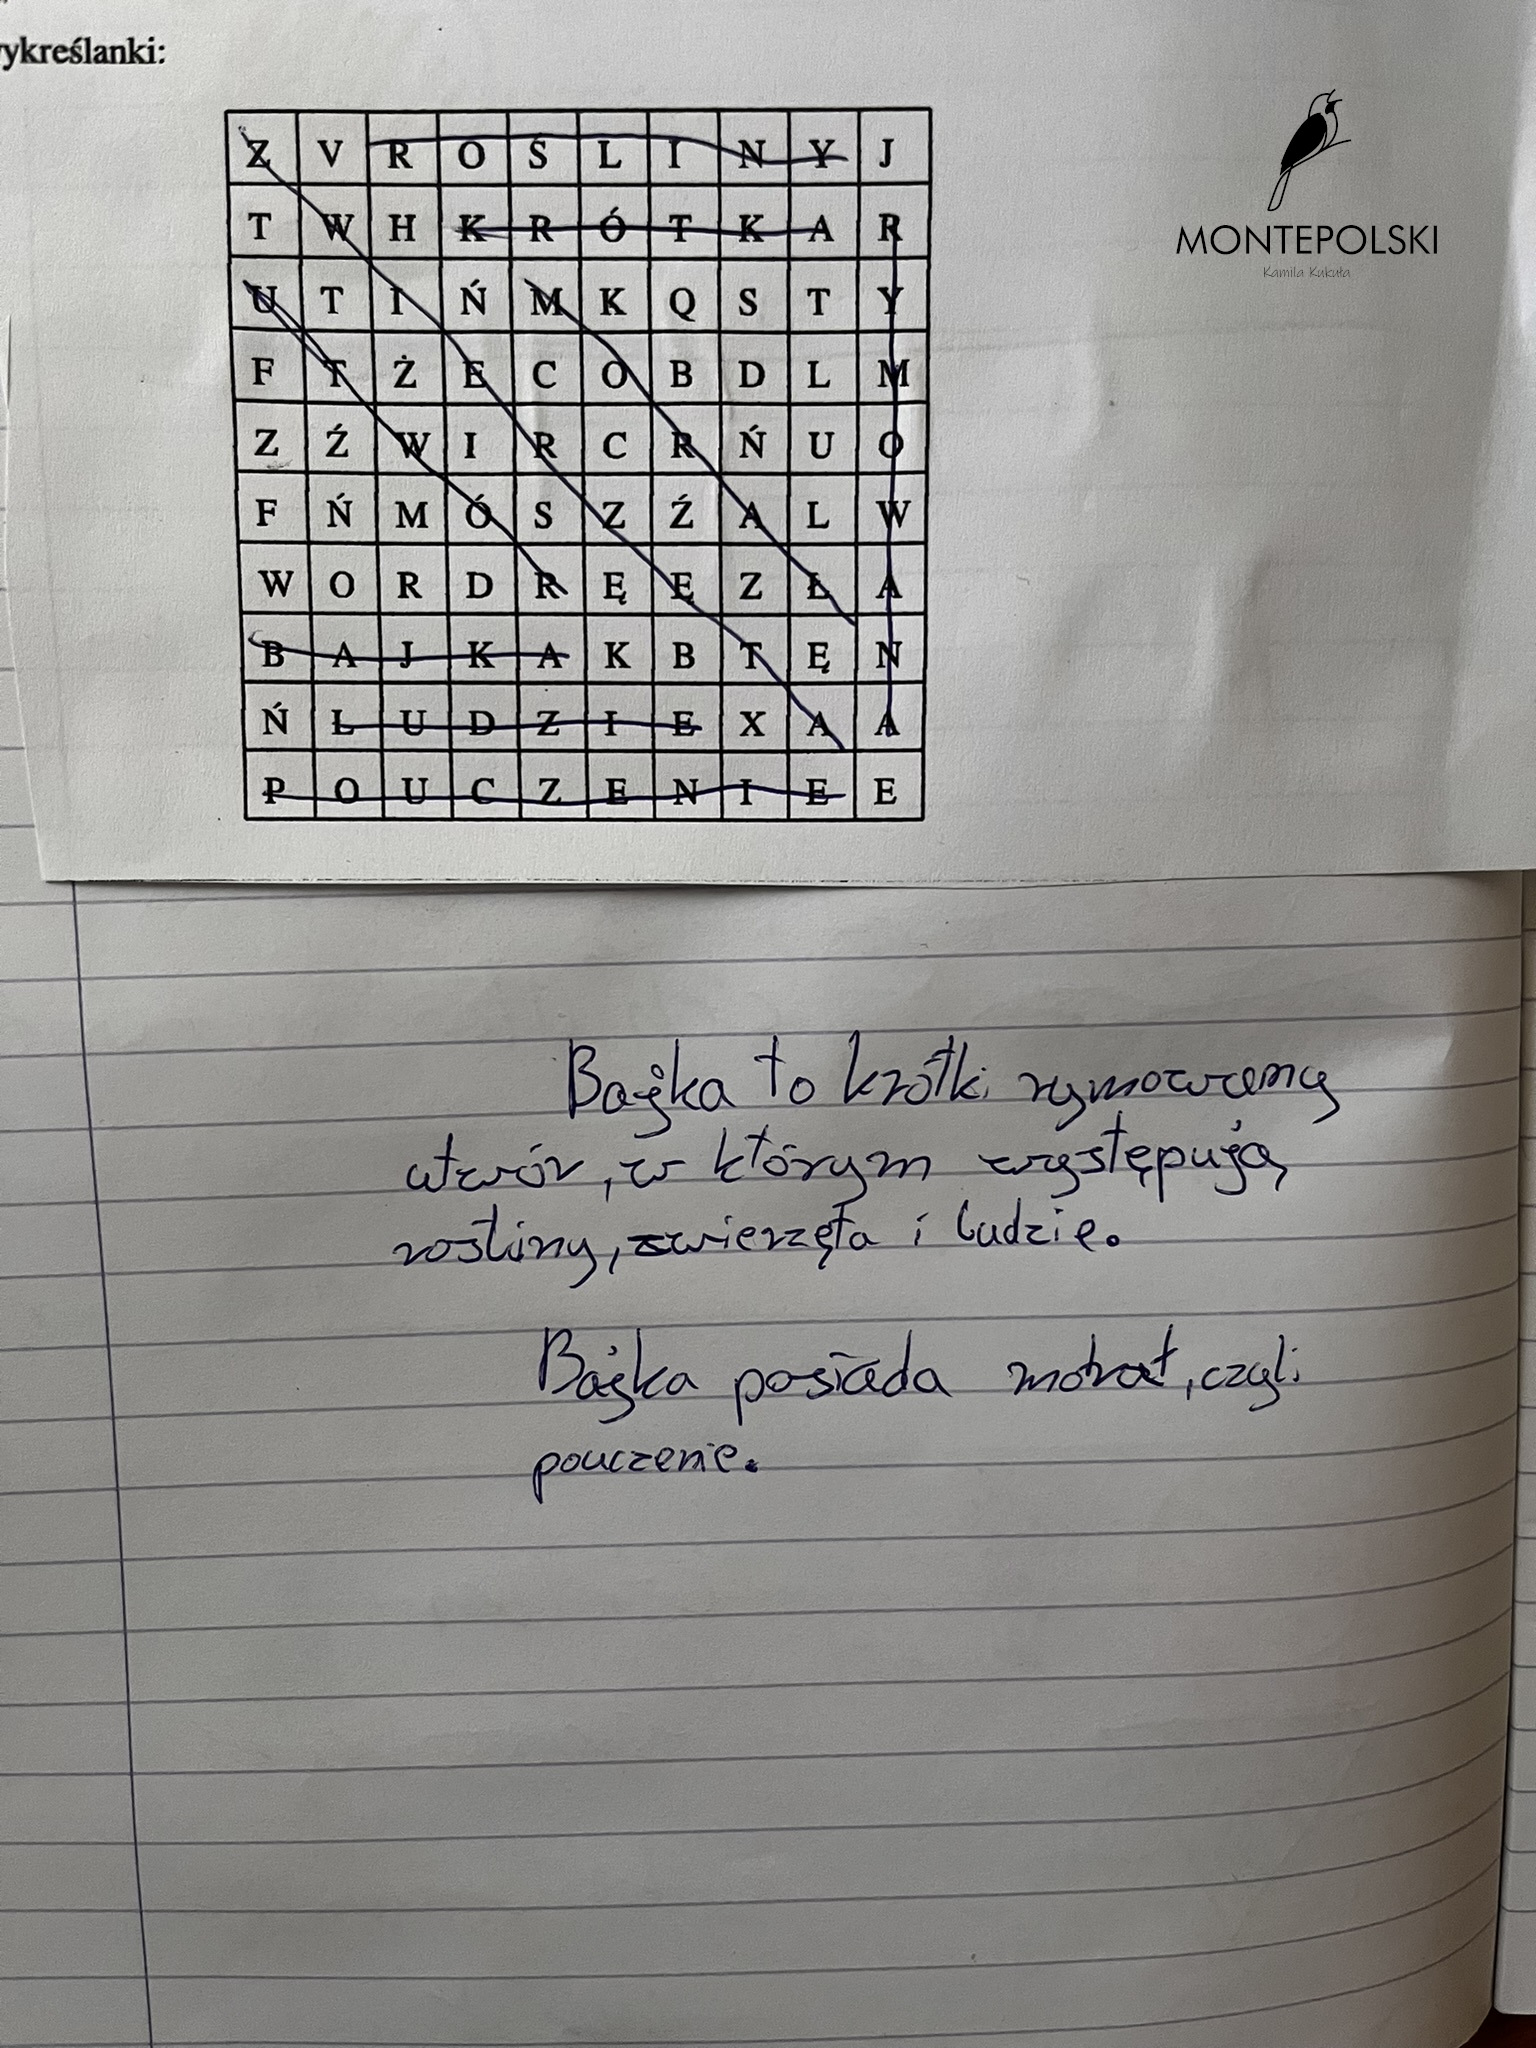 ykreślanki:
Z V R O Ś L I N Y J
T W H K R Ó T K A R
U T I Ń M K Q S T Y
F T Ż E C O B D L M
Z Ź W I R C R Ń U O
F Ń M Ó S Z Ź A L W
W O R D R Ę Ę Z Ł A
B A J K A K B T Ę N
Ń L U D Z I E X A A
P O U C Z E N I E E
MONTEPOLSKI
Kamila Kukuła
Bajka to krótki rymowany
utwór, w którym występują
rośliny, zwierzęta i ludzie.
Bajka posiada morał, czyli
pouczenie.